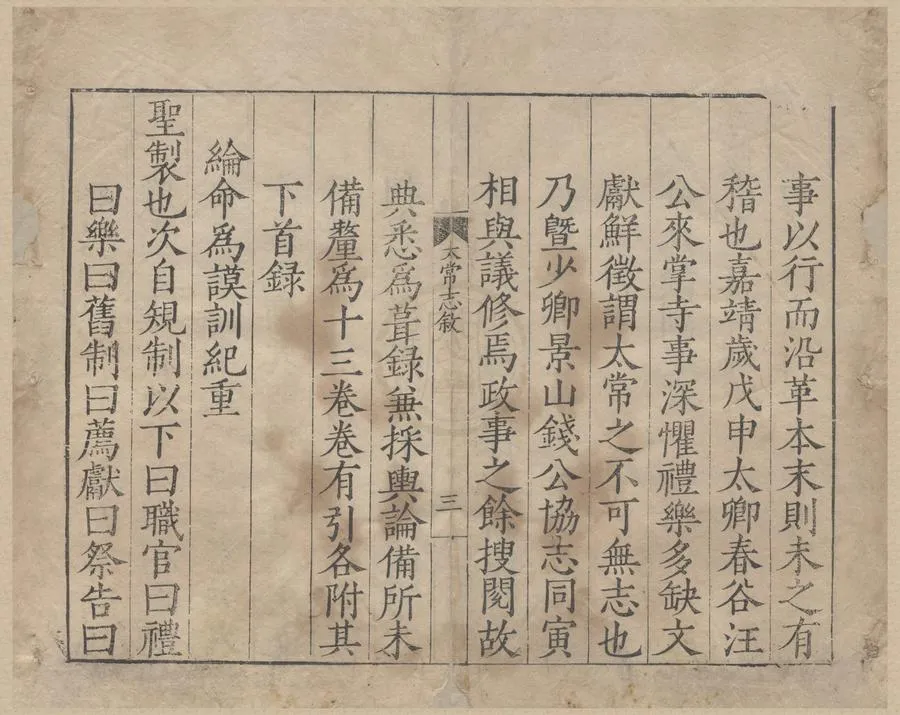 事以行而沿革本末則未之有
稽也嘉靖歲戊申太卿春谷汪
公來掌寺事深懼禮樂多缺文
獻鮮徵謂太常之不可無志也
乃暨少卿景山錢公協志同寅
相與議修焉政事之餘搜閱故
太常志敘
三
典悉爲葺録兼採輿論備所未
備釐爲十三卷卷有引各附其
下首録
綸命爲謨訓紀重
聖製也次自規制以下曰職官曰禮
曰樂曰舊制曰薦獻曰祭告曰